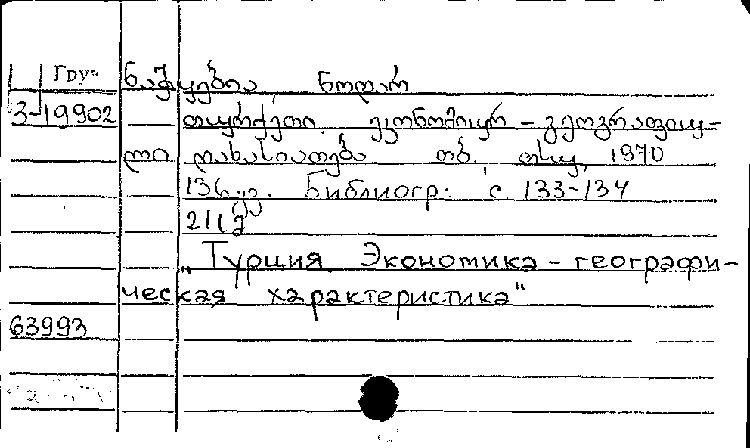 Груз ნაჭყებია ნოდარ
3-19902 თურქეთი. ეკონომიურ-გეოგრაფიუ-
ლი დახასიათება თბ. თსუ, 1970
136 გვ. Библиогр: с 133-134
211 გ
„Турция Экономика-географи-
ческая характеристика"
63993